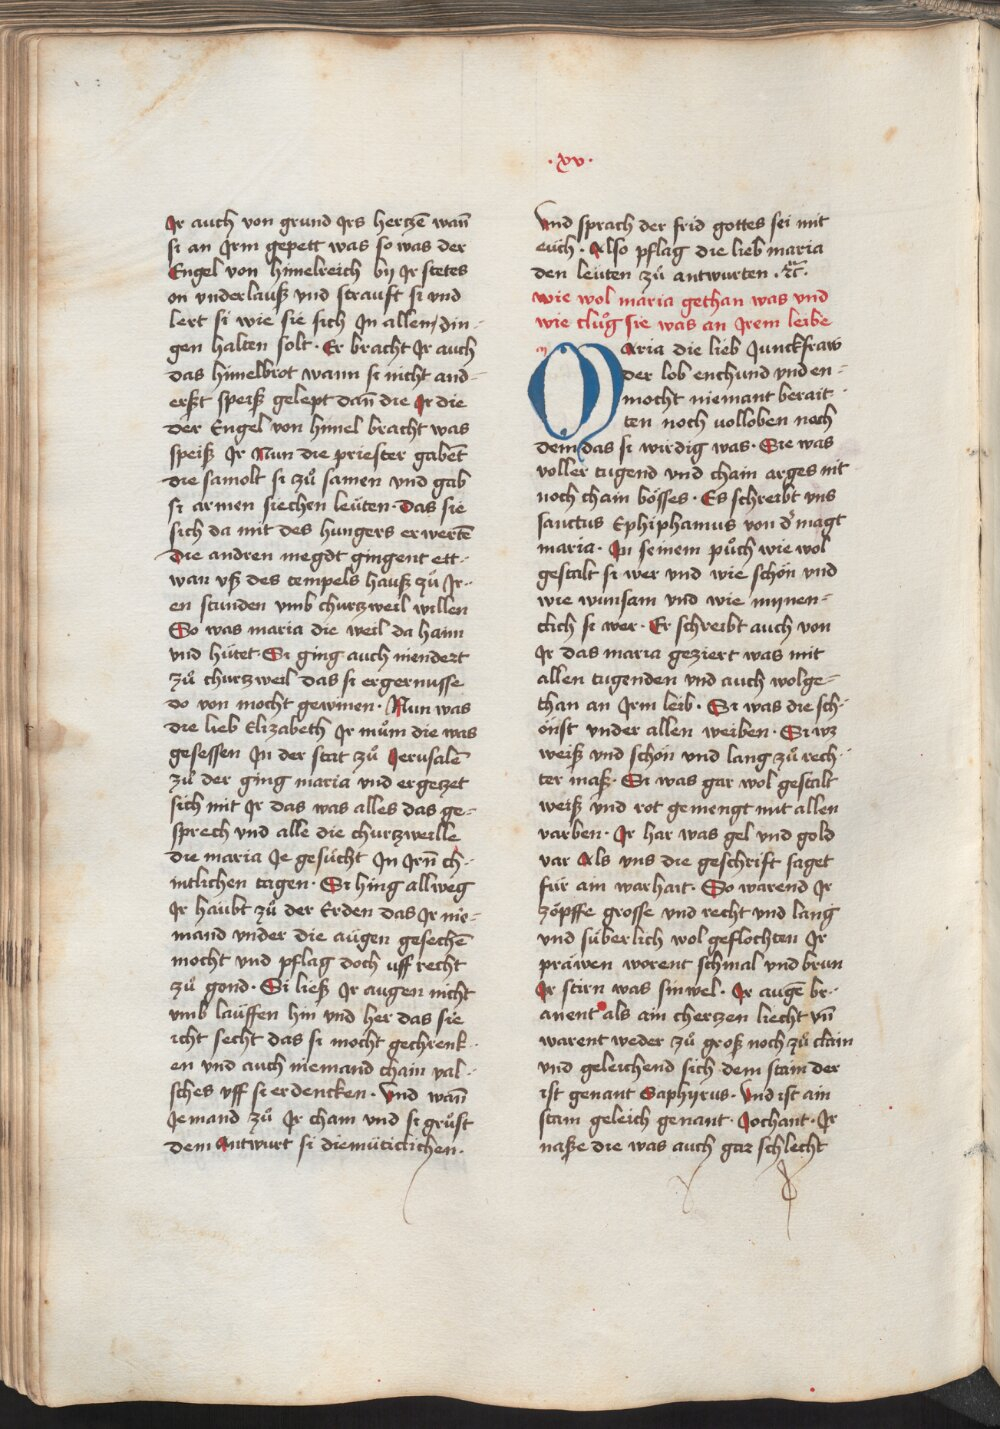 ·xv·
Jr auch von grund Jrs hertzē wañ
si an Jrm gepett was so was der
Engel von himelreich bij Jr stetes
on vnderlauß vnd strauft si vnd
lert si wie sie sich Jn allen din-
gen halten solt· Er bracht Jr auch
das himelbrot wann si nicht and-
erßt speiß gelept dañ die Jr die
der Engel von himel bracht was
speiß Jr Nun die priester gabēt
die samolt si zů samen vnd gab
si armen siechen leüten· Das sie
sich da mit des hungers erwertē
Die andren megdt gingent ett-
wan vß des tempels hauß zů Jr-
en stunden vmb churtzweil willen
So was maria die weil da haim
vnd hütet· Si ging auch niendert
zů churtzweil das si ergernusse
do von mocht gewinen· Nun was
die lieb Elizabeth Jr mům die was
gesessen Jn der stat zů Jerusalē
zů der ging maria vnd ergetzet
sich mit Jr das was alles das ge-
sprech vnd alle die churtzweille
die maria Je gesücht Jn Jrñ ch-
intlichen tagen· Si hing allweg
Jr haubt zů der Erden das Jr nie-
mand vnder die augen gesechē
mocht vnd pflag doch uff recht
zů gond· Si ließ Jr augen nicht
vmb lauffen hin vnd her das sie
icht secht das si mocht gechrenk-
en vnd auch niemand chain val-
sches vff si erdencken· Vnd wañ
Jemand zů Jr cham vnd si grůst
dem Antwurt si diemüticlichen·
Vnd sprach der frid gottes sei mit
euch· Also pflag die lieb maria
den leüten zů antwurten· ꝛc̄·
wie wol maria gethan was vnd
wie clůg sie was an Jrem leibe
Maria die lieb Junckfraw
der lob enchund vnd en-
mocht niemant berait-
ten noch volloben nach
dem das si wirdig was· Sie was
voller tugend vnd chain arges nit
noch chain bösses· Es schreibt vns
sanctus Ephiphanius von d' magt
maria· Jn seinem půch wie wol
gestalt si wer vnd wie schön vnd
wie wunsam vnd wie mijnen-
clich si wer· Er schreibt auch von
Jr das maria geziert was mit
allen tugenden vnd auch wolge-
than an Jrm leib· Si was die sch-
önst vnder allen weiben· Si wz
weiß vnd schön vnd lang zů rech-
ter maß· Si was gar wol gestalt
weiß vnd rot gemengt mit allen
varben· Jr har was gel vnd gold
var Als vns die geschrift saget
für ain warhait· So warend Jr
zöpffe grosse vnd recht vnd lang
vnd süberlich wol geflochten Jr
präwen worent schmal vnd brun
Jr stirn was sinwel· Jr augē br-
anent als ain chertzen liecht vñ
warent weder zů groß noch zů clain
vnd geleichend sich dem stain der
ist genant Saphyrus· Vnd ist ain
stain geleich genant· Jochant· Jr
naße die was auch gar schlecht